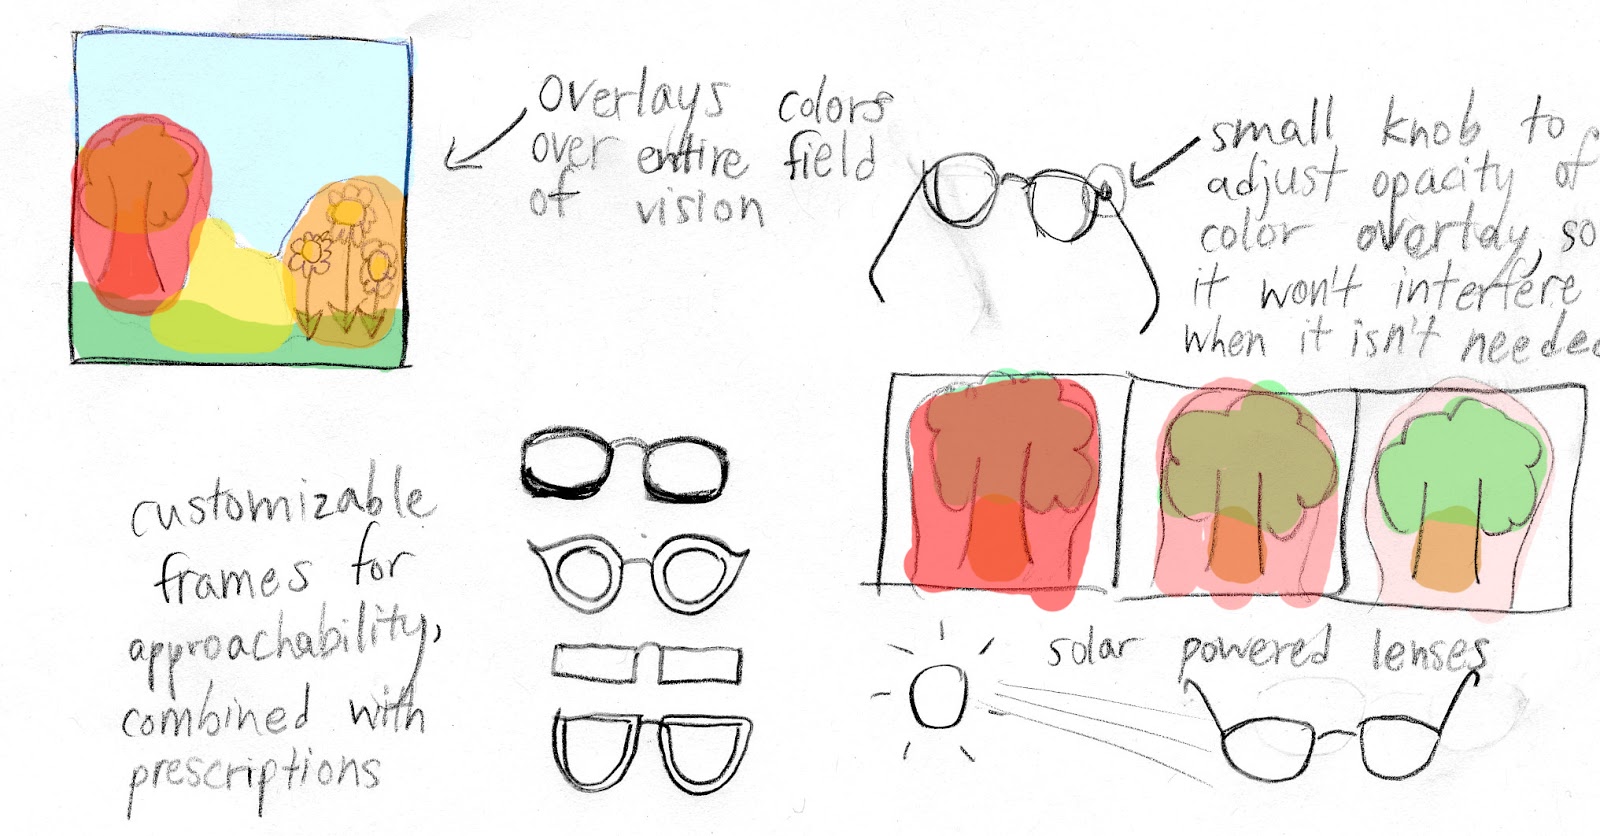 overlays colors
over entire field
of vision
small knob to
adjust opacity of
color overlay, so
it won't interfere
when it isn't needed
customizable
frames for
approachability,
combined with
prescriptions
solar powered lenses